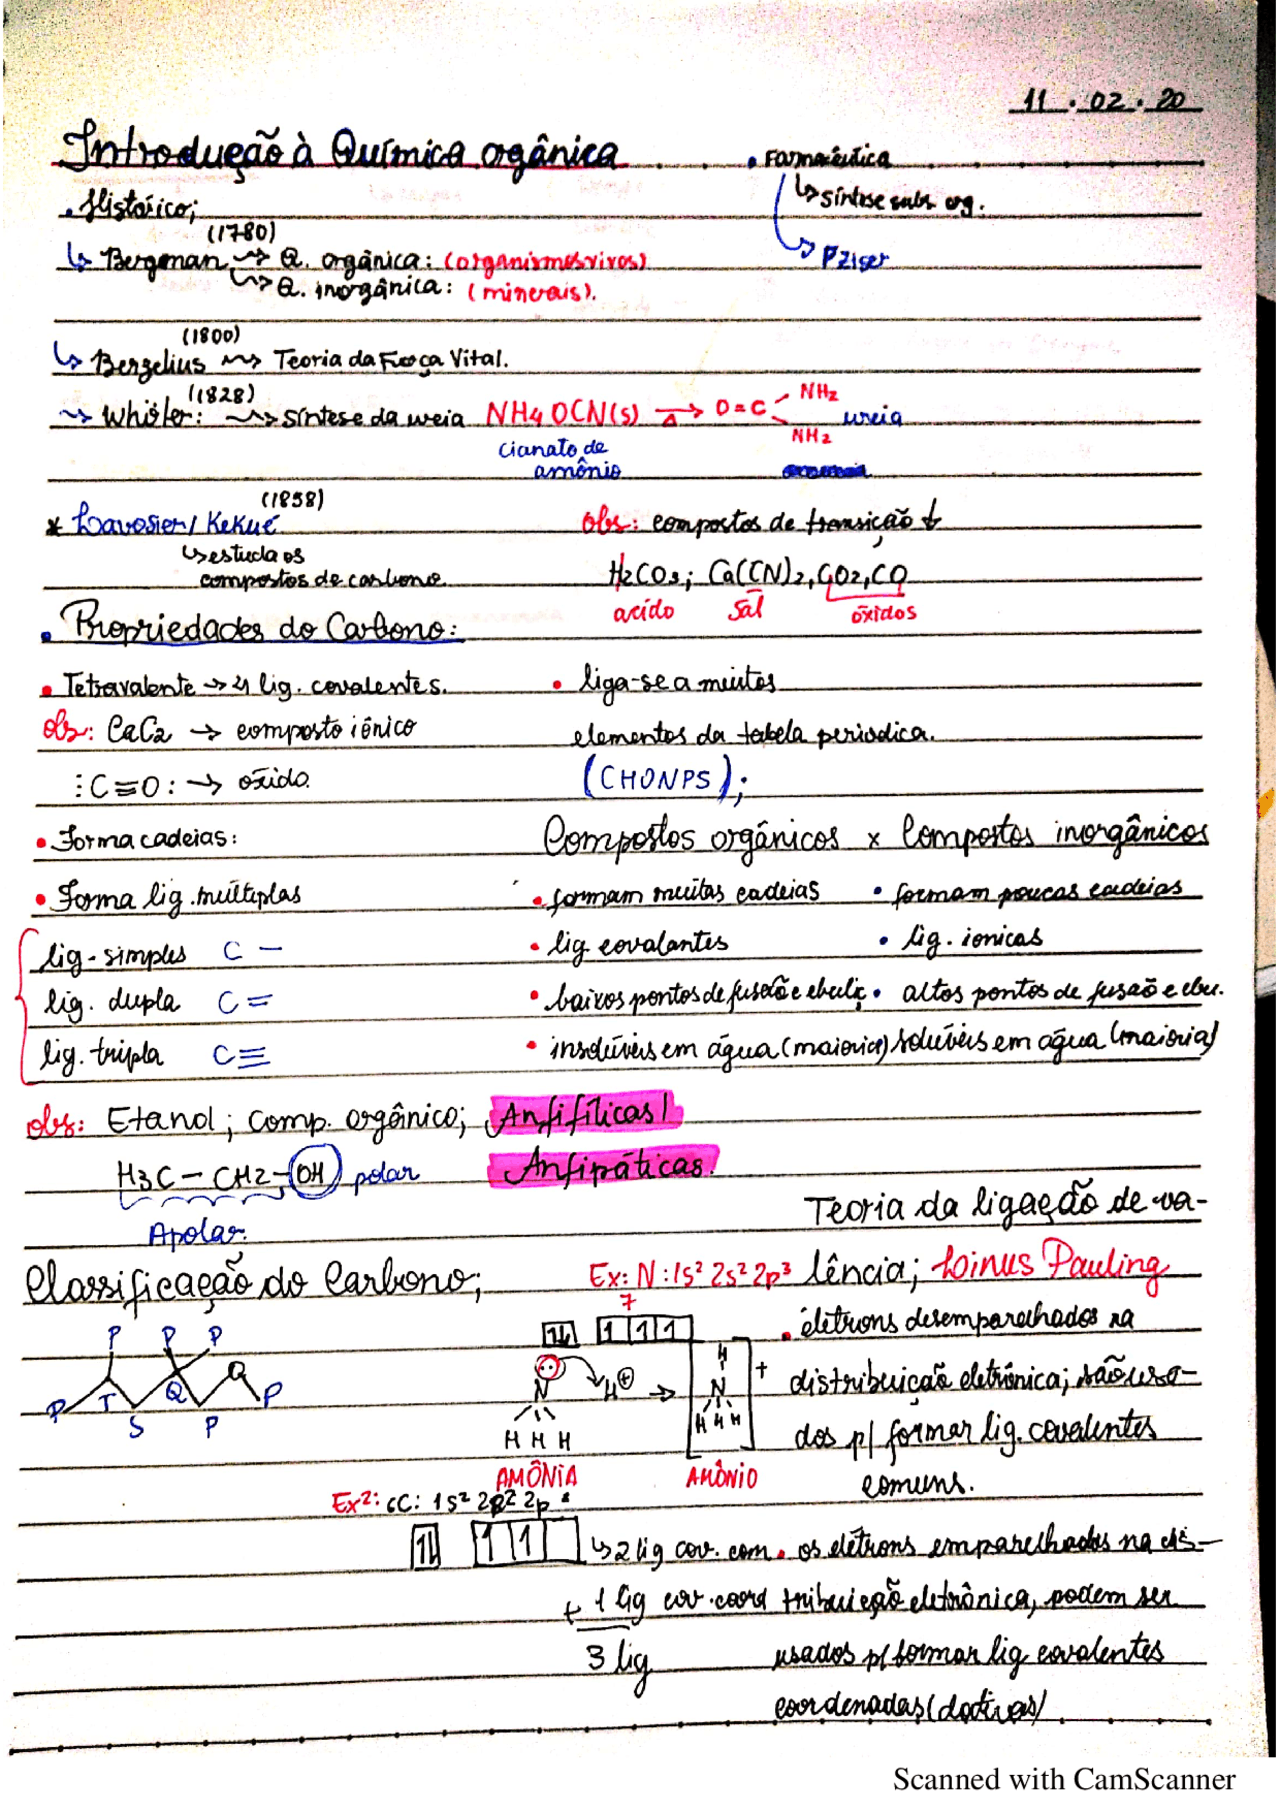 11.02.20
Introdução à Química ogânica
• Farmacêutica
↳ síntese subs. org.
↳ Pziser
• Histórico;
(1780)
↳ Bergman ⇝ Q. orgânica: (organismos vivos)
⇝ Q. inorgânica: (minerais).
(1800)
↳ Berzelius ⇝ Teoria da Força Vital.
(1828)
⇝ Whöler: ⇝ síntese da ureia NH4 OCN(s) →Δ O=C NH2 NH2 ureia
cianato de
amônio
(1858)
* Lavosier/ Kekué
↳ estuda os
compostos de carbono.
obs: compostos de transição ↓
H2CO3; Ca(CN)2, CO2, CO
acído sal óxidos
• Propriedades do Carbono:
• Tetravalente → 4 lig. covalentes.
obs: CaC2 → composto iônico
:C≡O: → óxido.
• liga-se a muitos
elementos da tabela periodica.
(CHONPS);
• Forma cadeias:
• Forma lig. múltiplas
lig. simples C −
lig. dupla C =
lig. tripla C ≡
Compostos orgânicos x Compostos inorgânicos
• formam muitas cadeias • formam poucas cadeias
• lig covalantes • lig. ionicas
• baixos pontos de fusão e ebuliç • altos pontos de fusão e ebu.
• insolúvéis em água (maioria) solúvéis em água (maioria)
obs: Etanol; comp. orgânico; Anfifílicas/
H3C − CH2 − OH polar Anfipáticas.
Apolar.
Classificação do Carbono;
P P P
P T Q Q P
S P
Ex: N: 1s² 2s² 2p³
7
1↓ 1 1 1
N H⊕ → H N +
H H H H H H
AMÔNIA AMÔNIO
Ex²: 6C: 1s² 2s² 2p²
1↓ 1 1
↳ 2 lig cov. com
+ 1 lig cov. coord
3 lig
Teoria da ligação de va-
lência; Linus Pauling
• életrons desemparelhados na
distribuição eletrônica; são usa-
dos p/ formar lig. covalentes
comuns.
• os elétrons emparelhados na dis-
tribuição eletrônica, podem ser
usados p/ formar lig covalentes
coordenadas (dativas)
Scanned with CamScanner